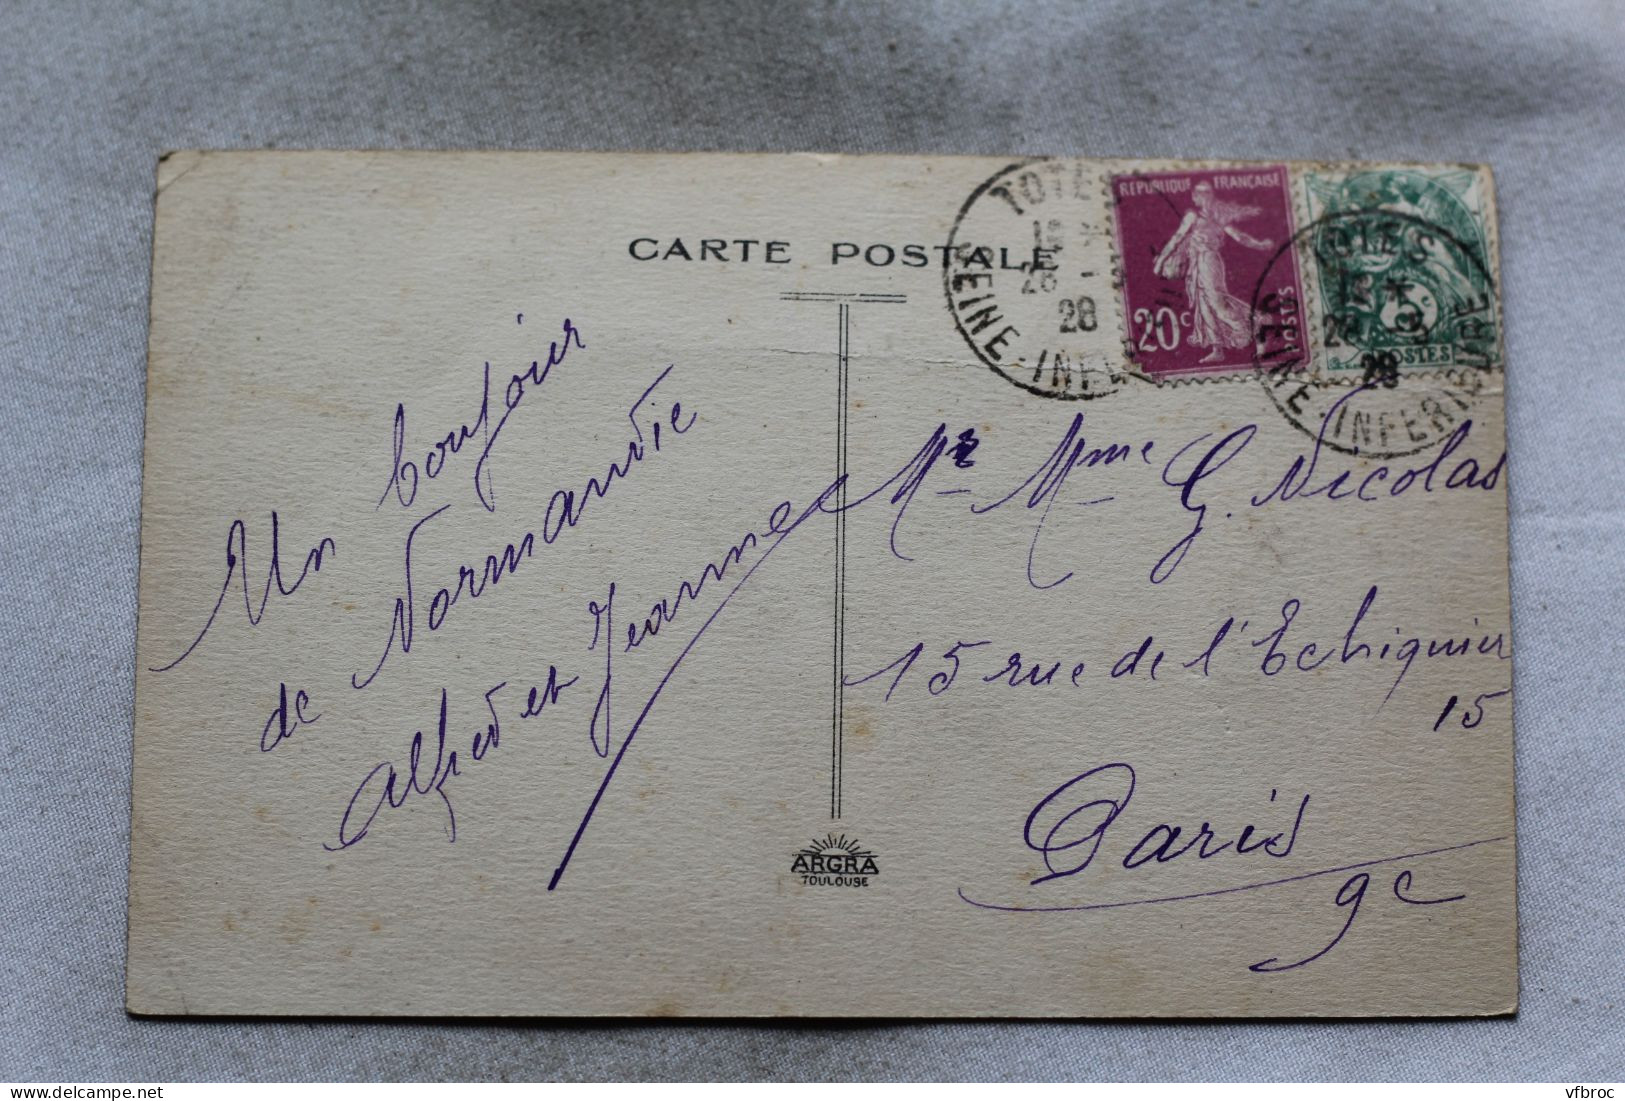 CARTE POSTALE
Un bonjour
de Normandie
Alfred et Jeanne
ARGRA
TOULOUSE
TOTES
28
28
SEINE-INFER
REPUBLIQUE FRANÇAISE
20c
POSTES
TOTES
28 - 5
28
SEINE-INFERIEURE
5c
POSTES
Mr Mme G. Nicolas
15 rue de l'Echiquier
15
Paris
9e
delcampe.net
vfbroc